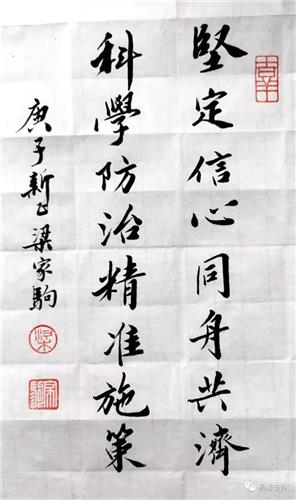 堅定信心同舟共濟
科學防治精准施策
庚子新正梁家駒